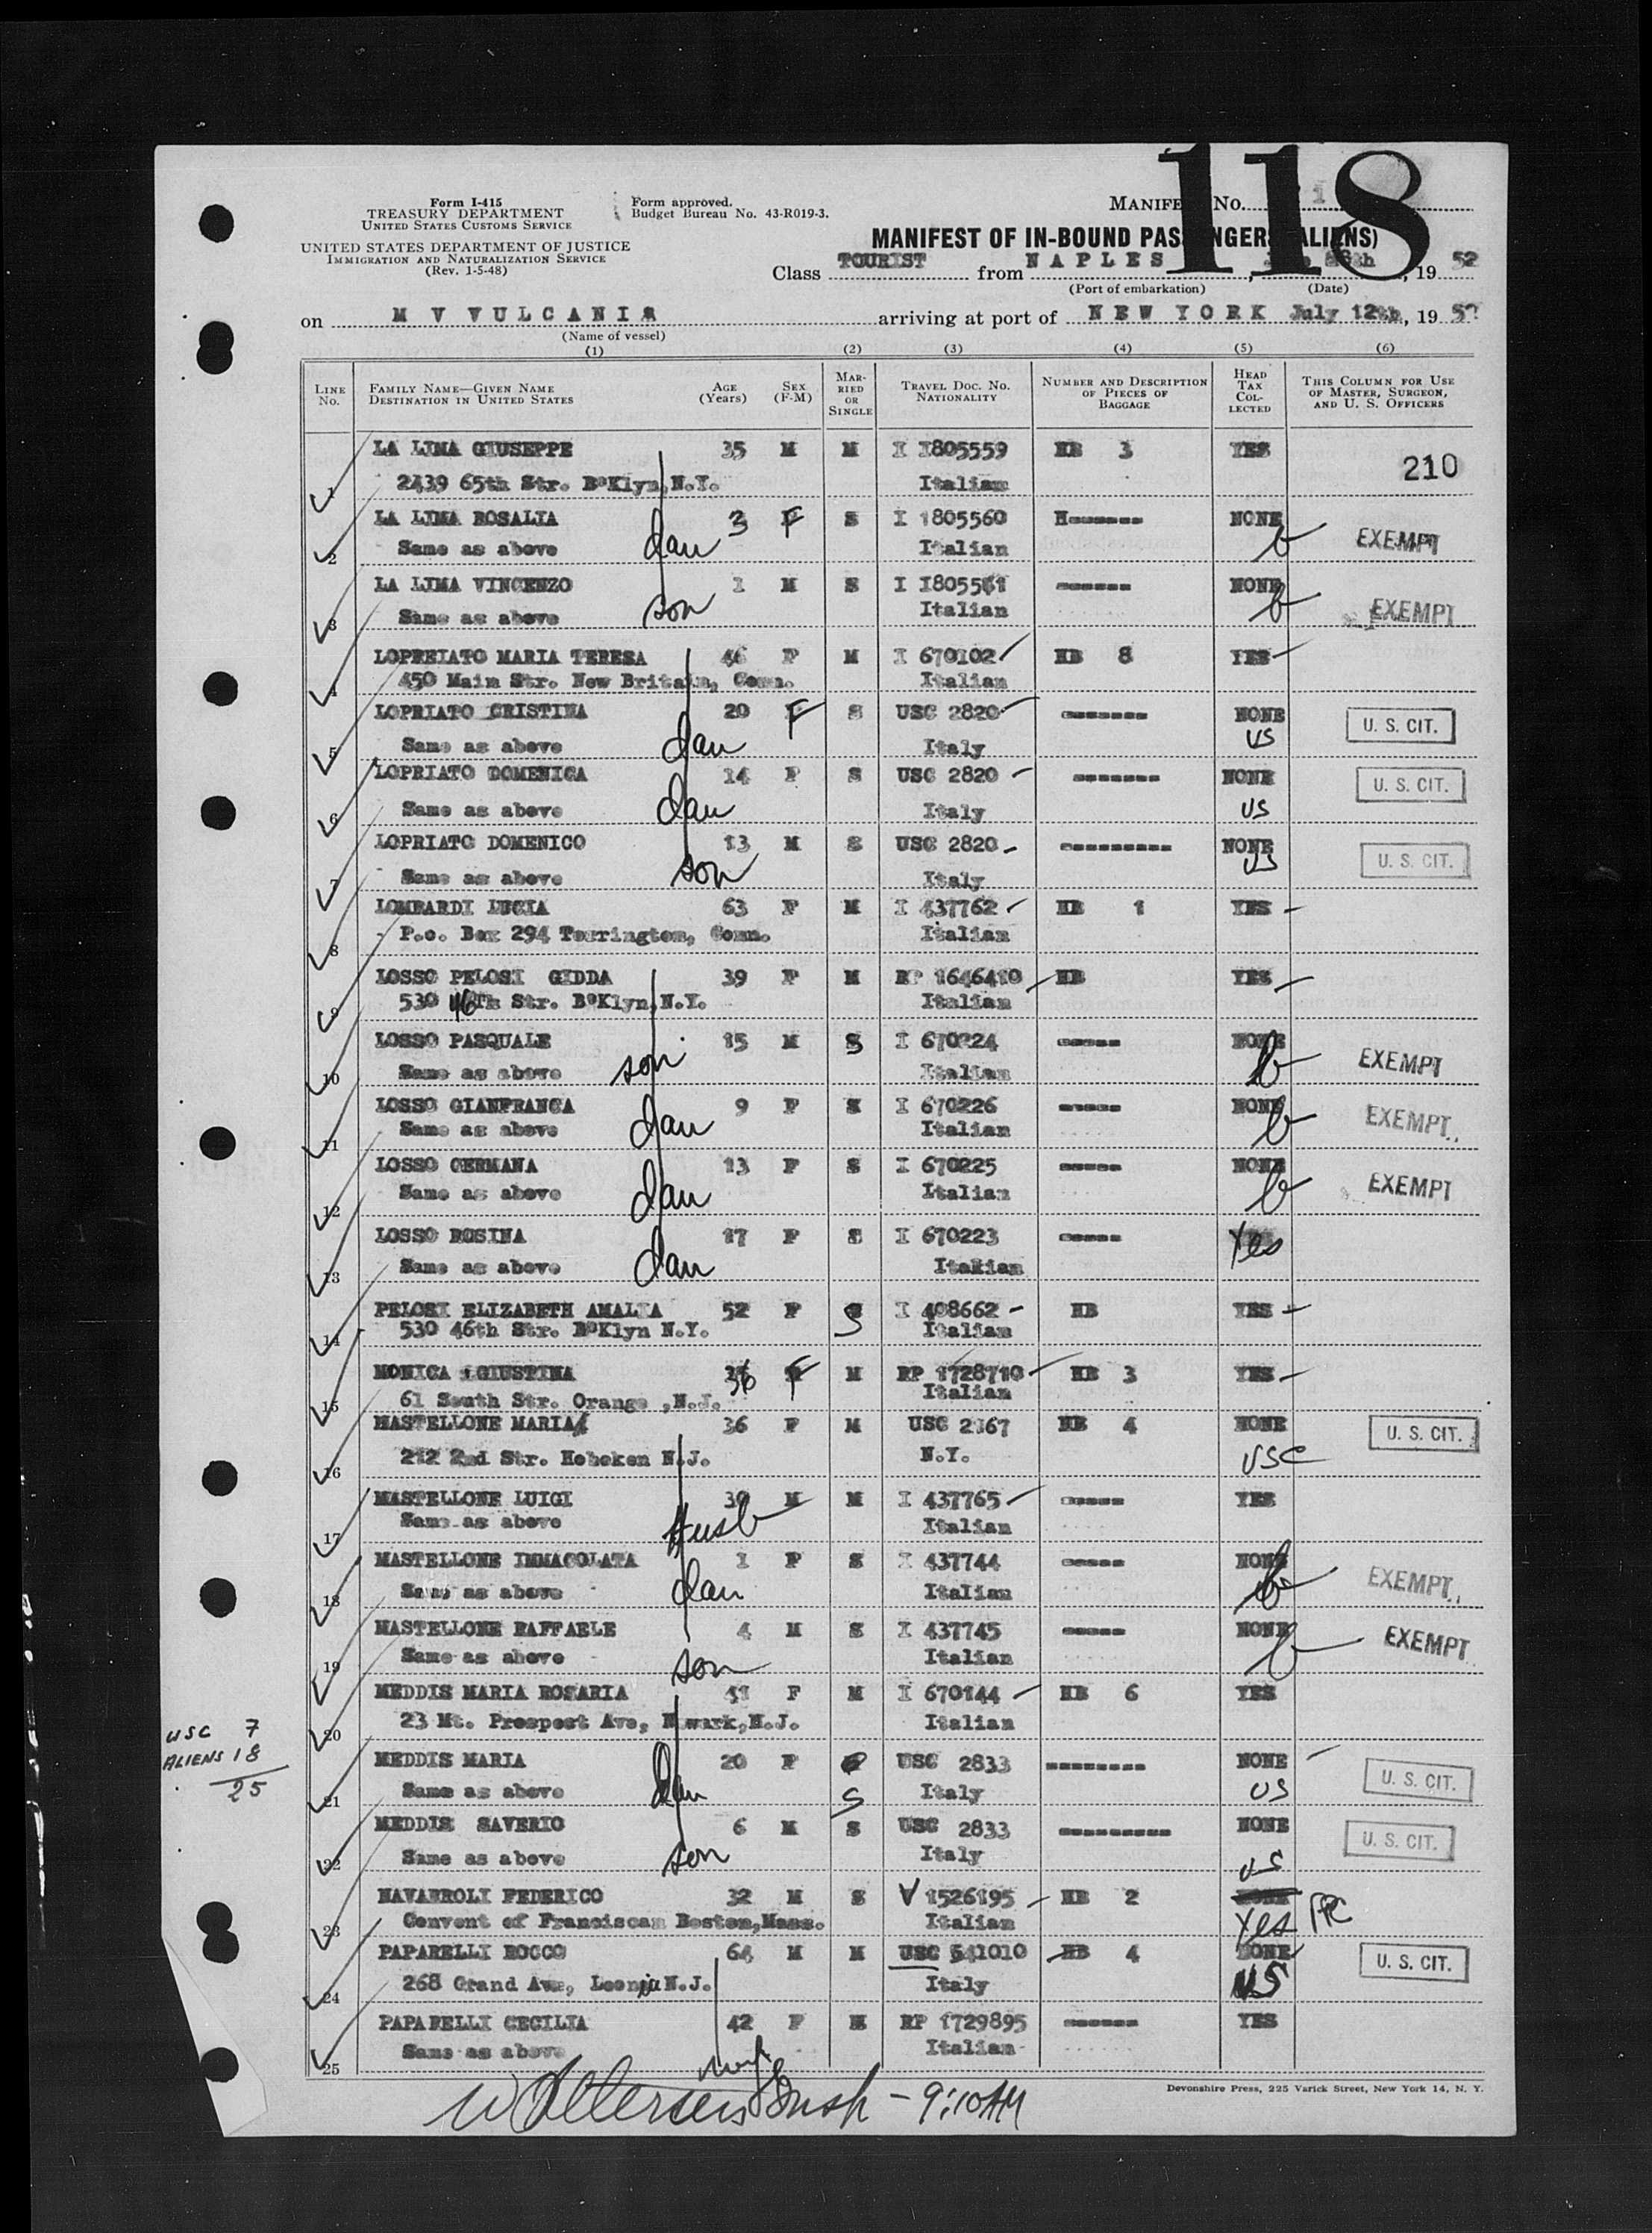 118
Form I-415
TREASURY DEPARTMENT
UNITED STATES CUSTOMS SERVICE
UNITED STATES DEPARTMENT OF JUSTICE
IMMIGRATION AND NATURALIZATION SERVICE
(Rev. 1-5-48)
Form approved.
Budget Bureau No. 43-R019-3.
MANIFEST OF IN-BOUND PASSENGERS (ALIENS)
Class TOURIST from NAPLES, 19 52
(Port of embarkation) (Date)
on M V VULCANIA arriving at port of NEW YORK July 12th, 19 52
(Name of vessel)
(1) (2) (3) (4) (5) (6)
LINE No. FAMILY NAME—GIVEN NAME DESTINATION IN UNITED STATES AGE (Years) SEX (F-M) MARRIED OR SINGLE TRAVEL DOC. NO. NATIONALITY NUMBER AND DESCRIPTION OF PIECES OF BAGGAGE HEAD TAX COLLECTED THIS COLUMN FOR USE OF MASTER, SURGEON, AND U. S. OFFICERS
LA LIMA GIUSEPPE 35 M M I 1805559 HB 3 YES 210
1 2439 65th Str. BºKlyn,N.Y. Italian
LA LIMA ROSALIA 3 F S I 1805560 NONE EXEMPT
2 Same as above dau Italian
LA LIMA VINCENZO 1 M S I 1805561 NONE EXEMPT
3 Same as above son Italian
LOPREIATO MARIA TERESA 46 F M I 670102 HB 8 YES
4 450 Main Str. New Britain, Conn. Italian
LOPRIATO CRISTINA 20 F S USC 2820 NONE U. S. CIT.
5 Same as above dau Italy US
LOPRIATO DOMENICA 14 F S USC 2820 NONE U. S. CIT.
6 Same as above dau Italy US
LOPRIATO DOMENICO 13 M S USC 2820 NONE U. S. CIT.
7 Same as above son Italy US
LOMBARDI LUCIA 63 F M I 437762 HB 1 YES
8 P.o. Box 294 Torrington, Conn. Italian
LOSSO PELOSI GEDDA 39 F M RP 1646410 HB YES
9 530 46Th Str. BºKlyn,N.Y. Italian
LOSSO PASQUALE 15 M S I 670224 NONE EXEMPT
10 Same as above son Italian
LOSSO GIANFRANCA 9 F S I 670226 NONE EXEMPT
11 Same as above dau Italian
LOSSO GERMANA 13 F S I 670225 NONE EXEMPT
12 Same as above dau Italian
LOSSO ROSINA 17 F S I 670223 Yes
13 Same as above dau Italian
PELOSI ELIZABETH AMALIA 52 F S I 408662 HB YES
14 530 46th Str. BºKlyn N.Y. Italian
MONICA GIUSTINA 36 F M RP 1728710 HB 3 YES
15 61 South Str. Orange ,N.J. Italian
MASTELLONE MARIA 36 F M USC 2367 HB 4 NONE U. S. CIT.
16 212 2nd Str. Hoboken N.J. N.Y. USC
MASTELLONE LUIGI 39 M M I 437765 YES
17 Same as above Husb Italian
MASTELLONE IMMACOLATA 1 F S I 437744 NONE EXEMPT
18 Same as above dau Italian
MASTELLONE RAFFAELE 4 M S I 437745 NONE EXEMPT
19 Same as above son Italian
MEDDIS MARIA ROSARIA 41 F M I 670144 HB 6 YES
20 23 Mt. Prospect Ave, Newark,N.J. Italian
MEDDIS MARIA 20 F S USC 2833 NONE U. S. CIT.
21 Same as above dau Italy US
MEDDIS SAVERIO 6 M S USC 2833 NONE U. S. CIT.
22 Same as above son Italy US
NAVARROLI FEDERICO 32 M S V 1526195 HB 2 NONE
23 Convent of Franciscan Boston,Mass. Italian Yes
PAPARELLI ROCCO 64 M M USC 541010 HB 4 NONE U. S. CIT.
24 268 Grand Ave, Leonia N.J. Italy US
PAPARELLI CECILIA 42 F M RP 1729895 YES
25 Same as above wife Italian
USC 7
ALIENS 18
25
Devonshire Press, 225 Varick Street, New York 14, N. Y.
9:10 AM